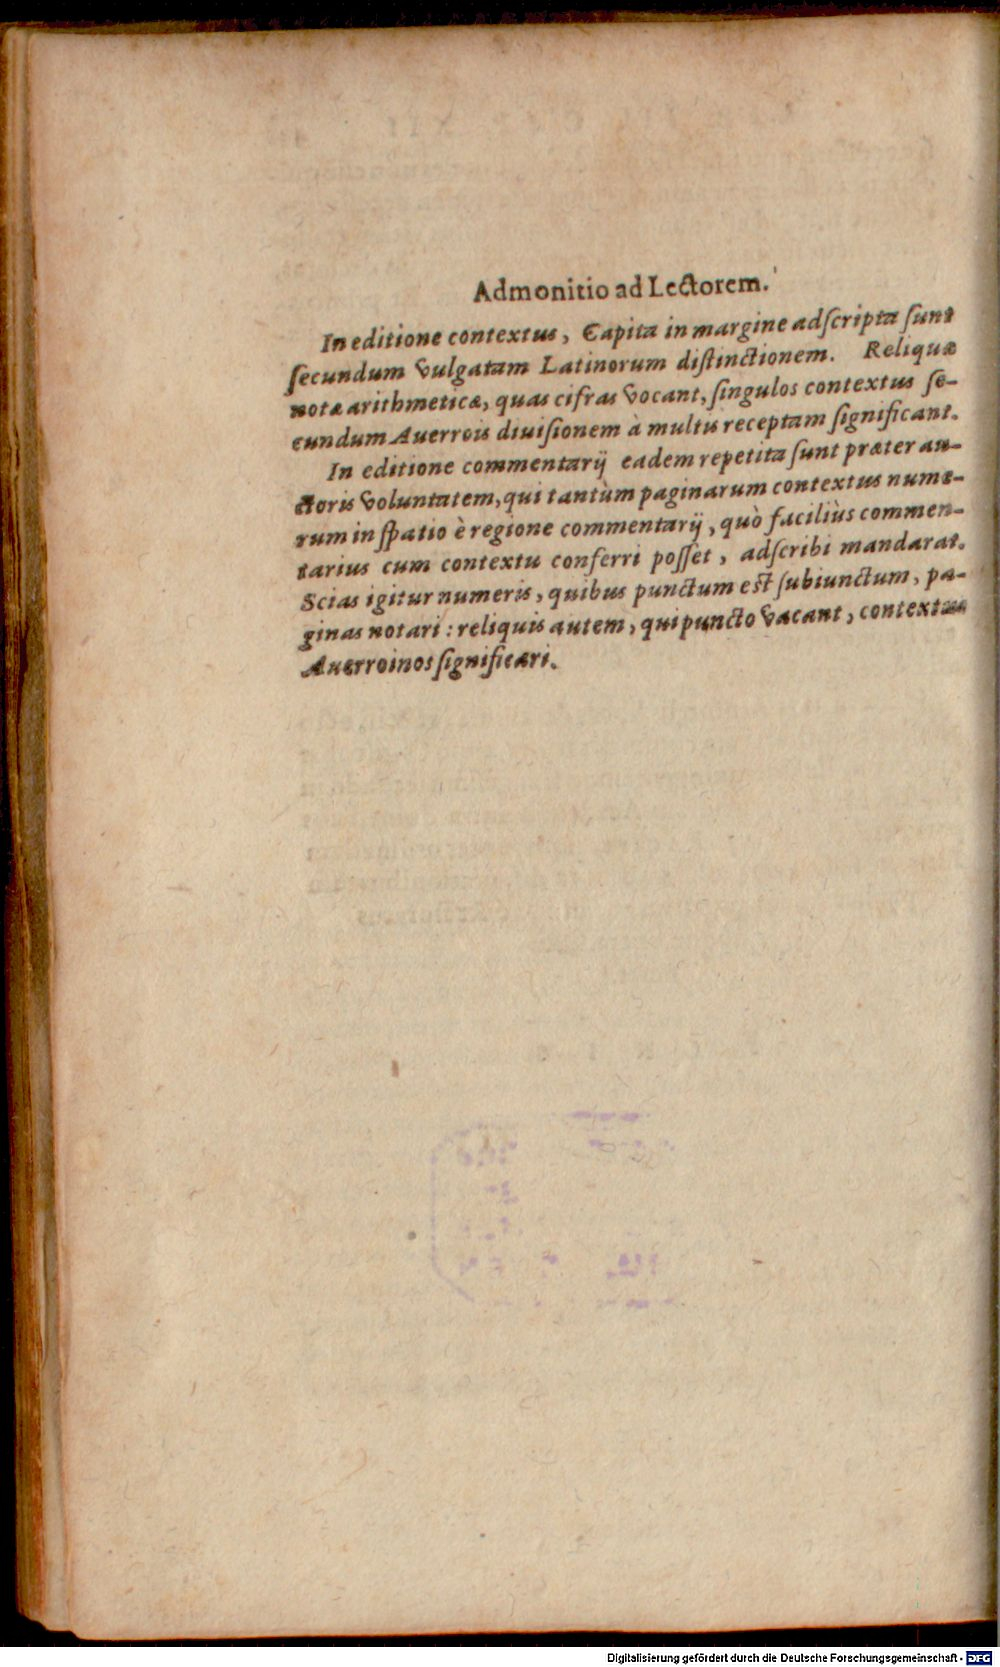 Admonitio ad Lectorem.
In editione contextus, Capita in margine adſcripta ſunt
ſecundum vulgatam Latinorum diſtinctionem. Reliquæ
notæ arithmeticæ, quas cifras vocant, ſingulos contextus ſe-
cundum Auerrois diuiſionem à multis receptam ſignificant.
In editione commentarij eadem repetita ſunt præter au-
ctoris voluntatem, qui tantùm paginarum contextus nume-
rum in ſpatio è regione commentarij, quò faciliùs commen-
tarius cum contextu conferri poſſet, adſcribi mandarat.
Scias igitur numeris, quibus punctum eſt ſubiunctum, pa-
ginas notari: reliquis autem, qui puncto vacant, contextus
Auerroinos ſignificari.
Digitalisierung gefördert durch die Deutsche Forschungsgemeinschaft - DFG